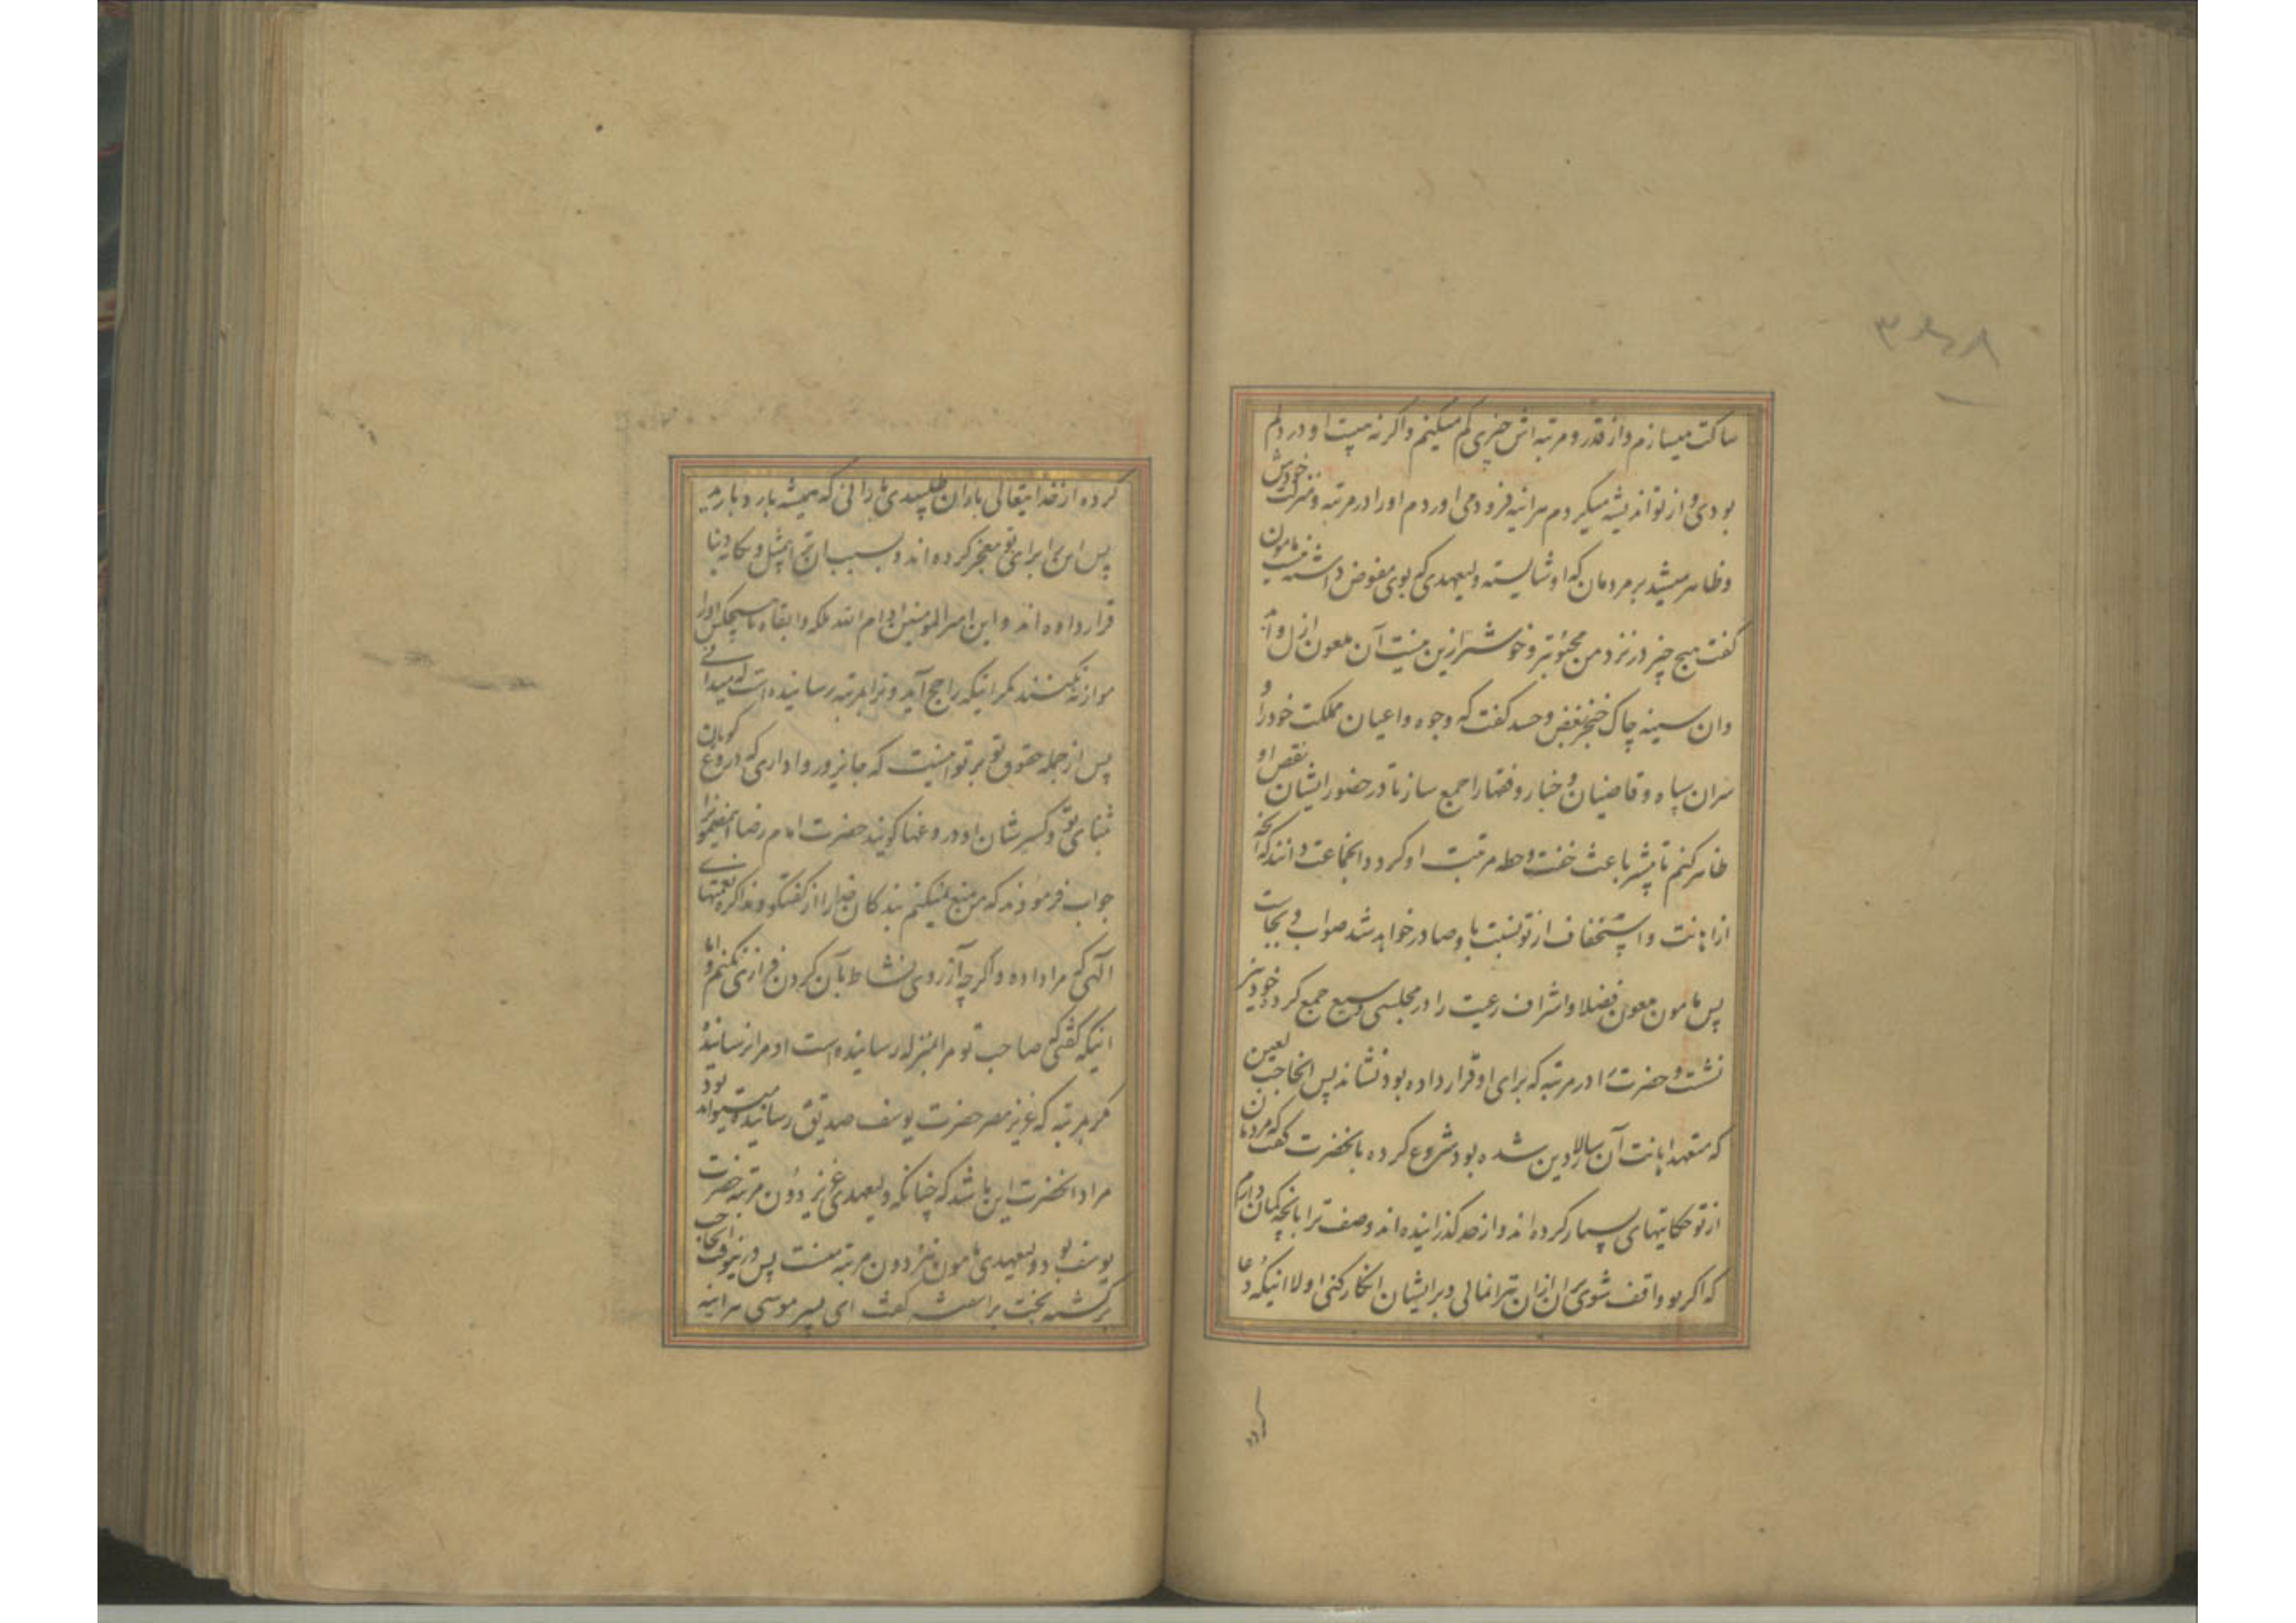 ساکت میسازم و از قدر و مرتبه اش چیزی کم میکنم و اگر نه هیبت او در دلم
بودی و از تو اندیشه میکردم هرآینه فرود می اوردم او را در مرتبه و منزلت خودش
و ظاهر میشد بر مردمان که او شایسته ولیعهدی که بوی مفوض داشته نیست مامون
گفت هیچ چیز در نزد من محبوبتر و خوشتر ازین نیست آن ملعون ازل و ابد
و ان سینه چاک خنجر بغض و حسد گفت که وجوه و اعیان مملکت خود را و
سران سپاه و قاضیان و خیار و فقها را جمع ساز تا در حضور ایشان نقص او
ظاهر کنم تا پیشتر باعث خفت و حط مرتبت او کردد و انجماعت دانند که انچه
از اهانت و استخفاف از تو نسبت باو صادر خواهد شد صواب و بجاست
پس مامون ملعون فضلا و اشراف رعیت را در مجلسی وسیع جمع کرد و خود نیز
نشست و حضرت را در مرتبه که برای او قرار داده بود نشاند پس انحاجب لعین
که متعهد اهانت آن سالار دین شده بود شروع کرده بانحضرت گفت که مردمان
از تو حکایتهای بسیار کرده اند و از حد گذرانیده اند وصف ترا بانچه گمان دارم
که اگر بدو واقف شوی بسوی ان ازان تبرا نمائی و بر ایشان انکار کنی اولا اینکه دعا
کرده
۳۶۸
کرده از خدایتعالی باران طلبیدی بارانی که همیشه بارد و بارید
پس این را برای تو معجز کرده اند و بسبب ان ترا بیمثل و یگانه دنیا
قرار داده اند و این امیرالمومنین ادام الله ملکه و ابقاه با هیچکس او را
موازنه نکنند مگر اینکه راجح آید و ترا بمرتبه رسانیده است که میدانی
پس از جمله حقوق او بر تو این نیست که جایز و روا داری که دروغ گویان
ثنای تو و کسر شان او دروغها گویند حضرت امام رضا
جواب فرمودند که من منع نمیکنم بندکان خدا را از گفتگو و مذاکره نعمتهای
الهی که مرا داده و اگر چه از روی نشاط بآن گردن فرازی نکنم و اما
اینکه گفتی که صاحب تو مرا بمنزله رسانیده است او مرا نرسانیده
مگر بمرتبه که عزیز مصر حضرت یوسف صدیق را رسانیده بود میتواند
مراد انحضرت این باشد که چنانکه ولیعهدی عزیز دون مرتبه حضرت
یوسف بود ولیعهدی مامون نیز دون مرتبه منست پس درینوقت انحاجب
برگشته بخت براشفته گفت ای پسر موسی هراینه